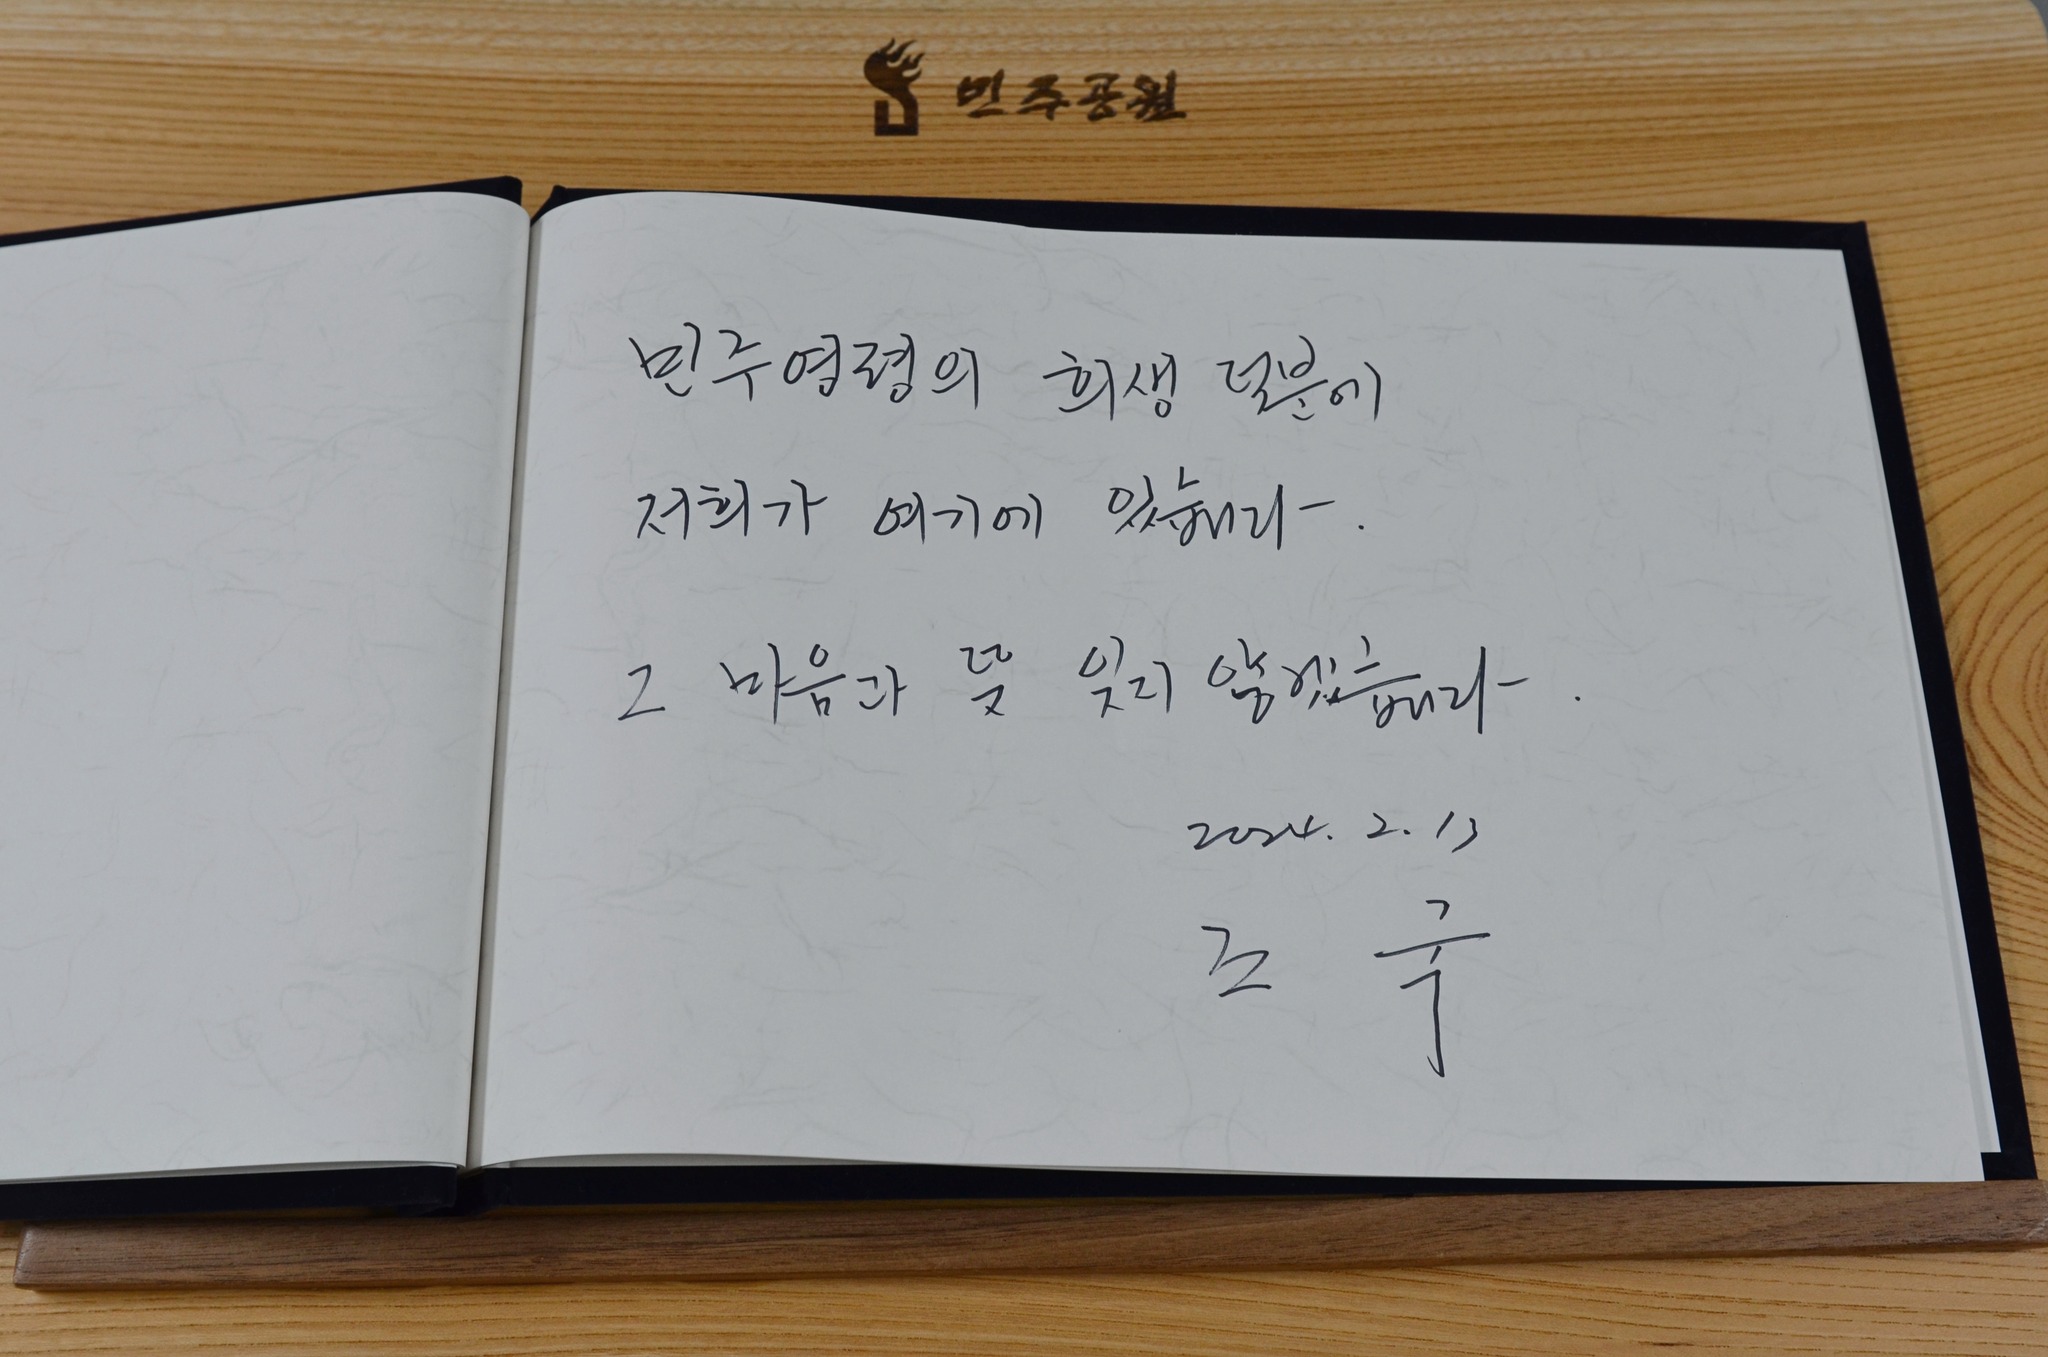 민주공원
민주영령의 희생 덕분에
저희가 여기에 있습니다.
그 마음과 뜻 잊지 않겠습니다.
2024. 2. 13
조 국